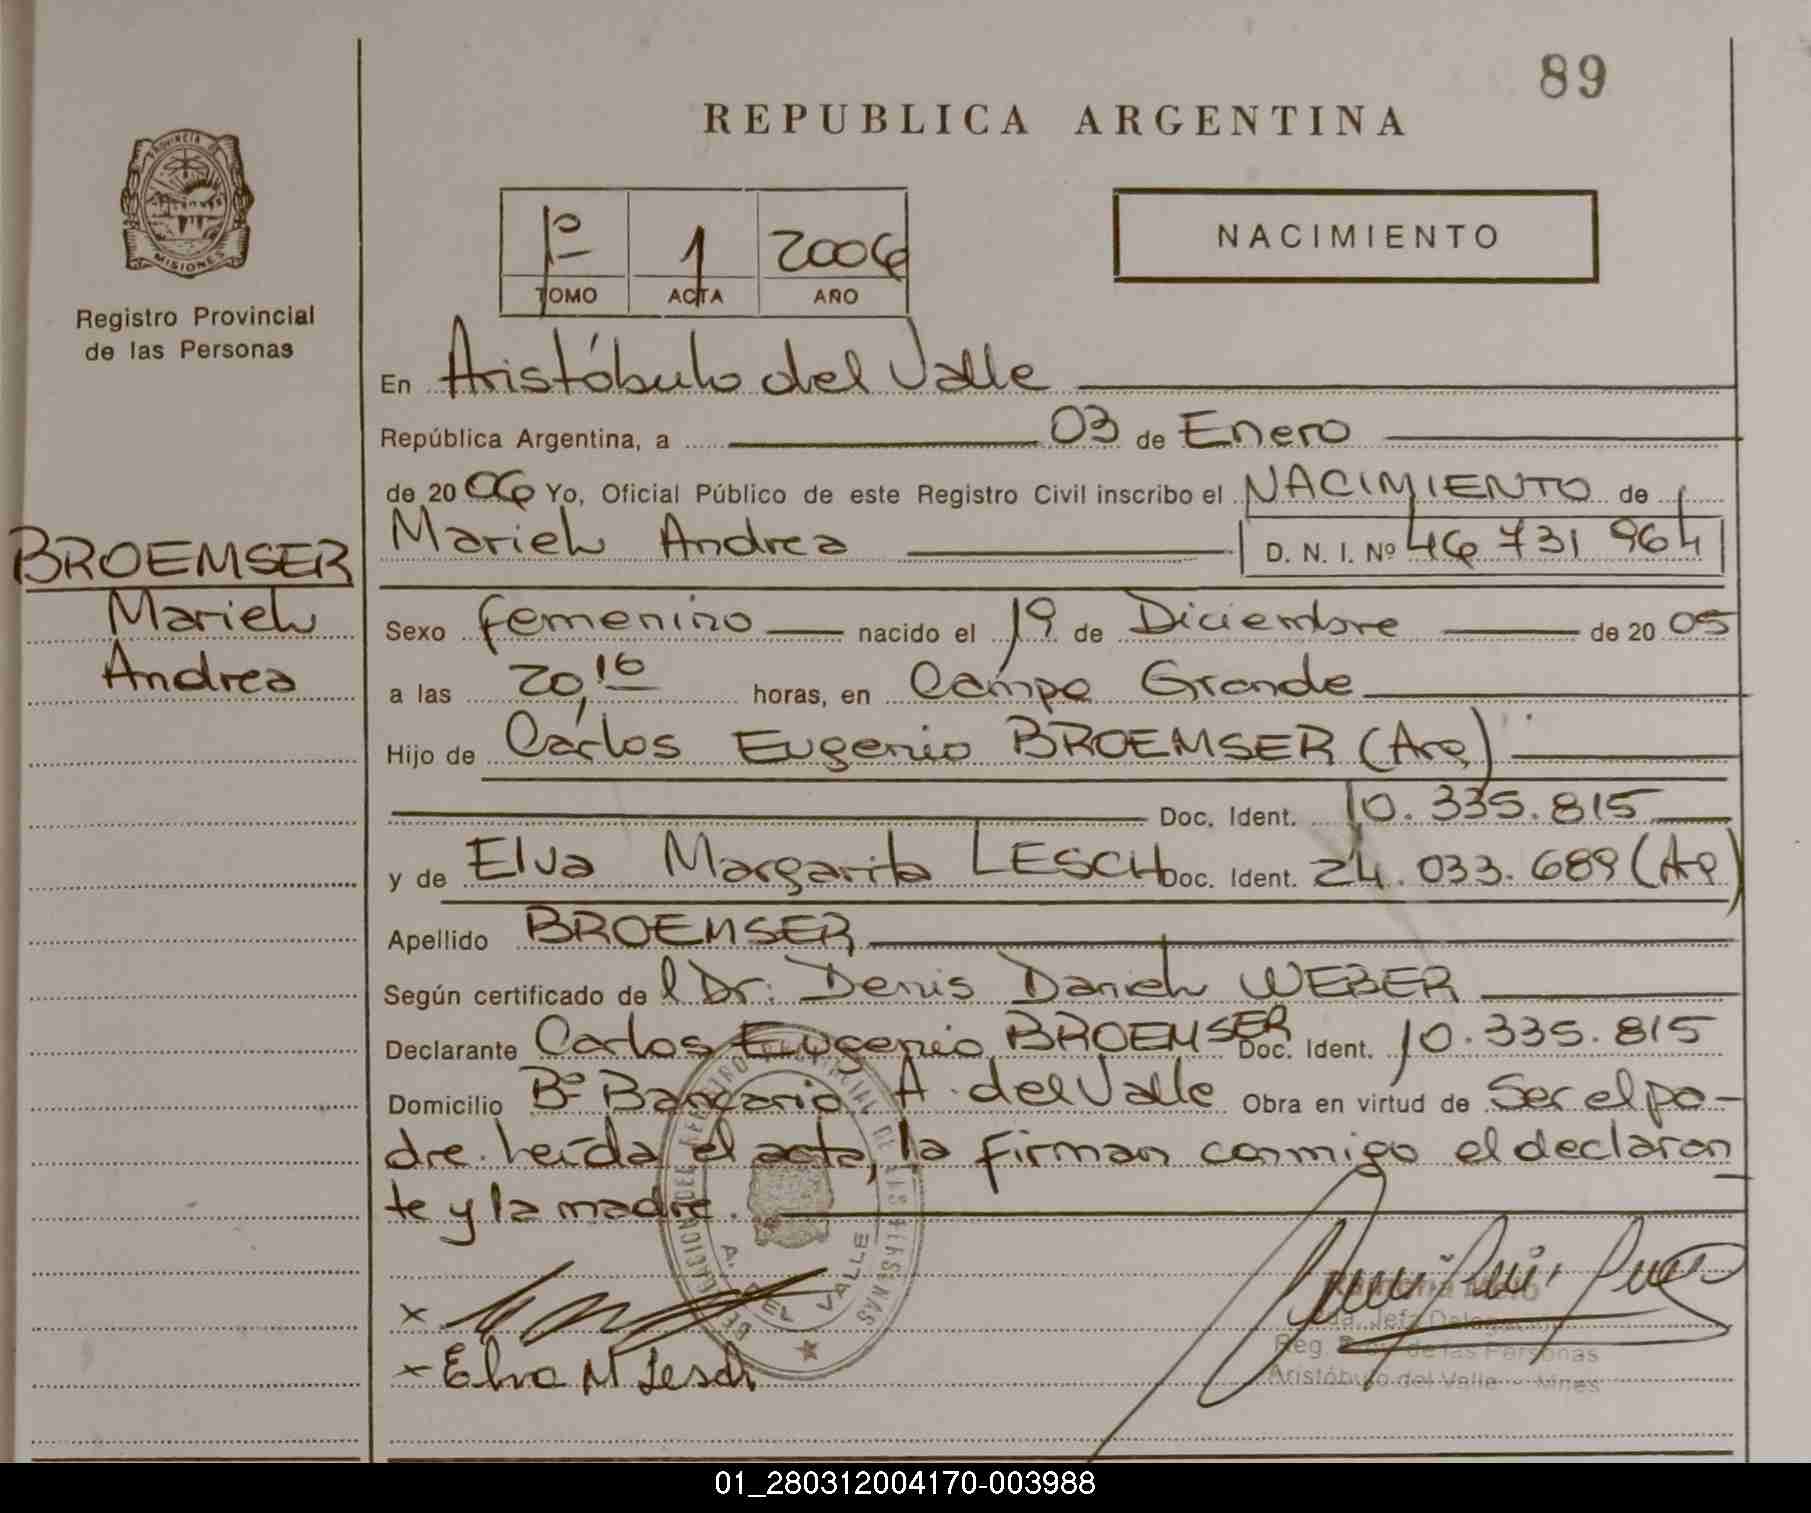 89
REPUBLICA ARGENTINA
PROVINCIA DE
MISIONES
Registro Provincial
de las Personas
1º 1 2006
TOMO ACTA AÑO
NACIMIENTO
En Aristóbulo del Valle
República Argentina, a 03 de Enero
de 2006 Yo, Oficial Público de este Registro Civil inscribo el NACIMIENTO de
BROEMSER
Mariela
Andrea
Mariela Andrea D. N. I. Nº 46 731 964
Sexo femenino nacido el 19 de Diciembre de 2005
a las 20,16 horas, en Campo Grande
Hijo de Carlos Eugenio BROEMSER (Arg)
Doc. Ident. 10.335.815
y de Elva Margarita LESCH Doc. Ident. 24.033.689 (Ag)
Apellido BROEMSER
Según certificado de l Dr. Denis Dariel WEBER
Declarante Carlos Eugenio BROEMSER Doc. Ident. 10.335.815
Domicilio Bº Bancario A. del Valle Obra en virtud de Ser el pa-
dre. Leída el acta, la firman conmigo el declaran
te y la madre.
A. DEL VALLE
x
x Elva M Lesch
Jefa Delegación
Reg. Prov. de las Personas
Aristóbulo del Valle - Mnes
01_280312004170-003988